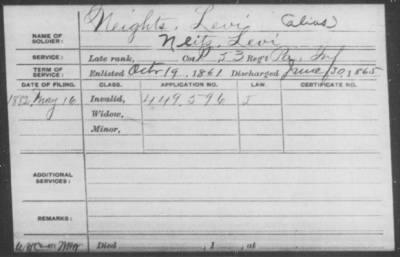 Neights, Levi (alias)
NAME OF SOLDIER: Neitz, Levi
SERVICE: Late rank, Co. 53 Reg't Pa. Inf
TERM OF SERVICE: Enlisted Oct 19, 1861 Discharged June 30, 1865
DATE OF FILING. CLASS. APPLICATION NO. LAW. CERTIFICATE NO.
1882 May 16 Invalid, 449,596 J
Widow,
Minor,
ADDITIONAL SERVICES:
REMARKS:
Died , 1 , at